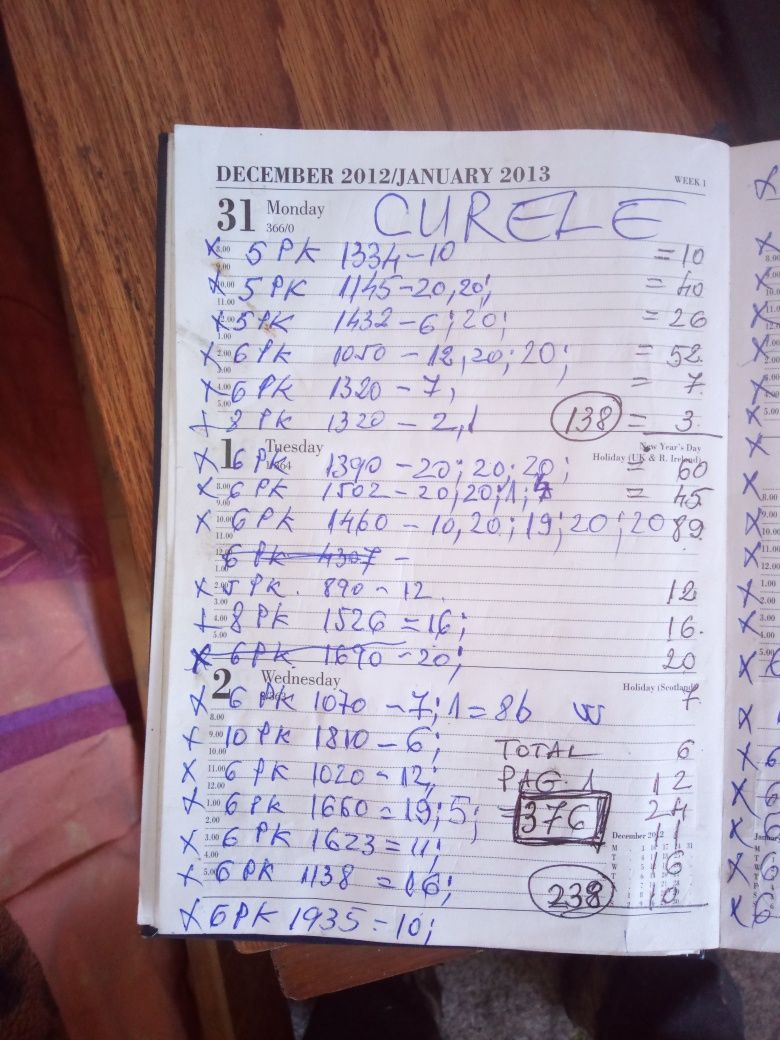 DECEMBER 2012/JANUARY 2013 WEEK 1
31 Monday CURELE
366/0
5 PK 1334-10 =10
X 5 PK 1145-20,20; =40
X 5 PK 1432-6;20; =26
X 6 PK 1050-12,20;20; =52
X 6 PK 1320-7, = 7
+ 8 PK 1320-2,1 138 = 3
1 Tuesday New Year's Day
Holiday (UK & R. Ireland)
X 6 PK 1390-20;20;20; = 60
X 6 PK 1502-20,20;1; = 45
X 6 PK 1460-10,20;19;20;20 89
6 PK 4307 -
X 5 PK. 890-12. 12
+ 8 PK 1526=16; 16.
X 6 PK. 1690-20; 20
2 Wednesday Holiday (Scotland)
X 6 PK 1070-7;1=8b 7
+ 10 PK 1810-6; TOTAL 6
X 6 PK 1020-12; PAG. 1 12
X 6 PK 1660=19;5; = 376 24
X 6 PK 1623=11; December 2012 11
X 6 PK 1138=16; 16
238 10
X 6PK 1935=10;